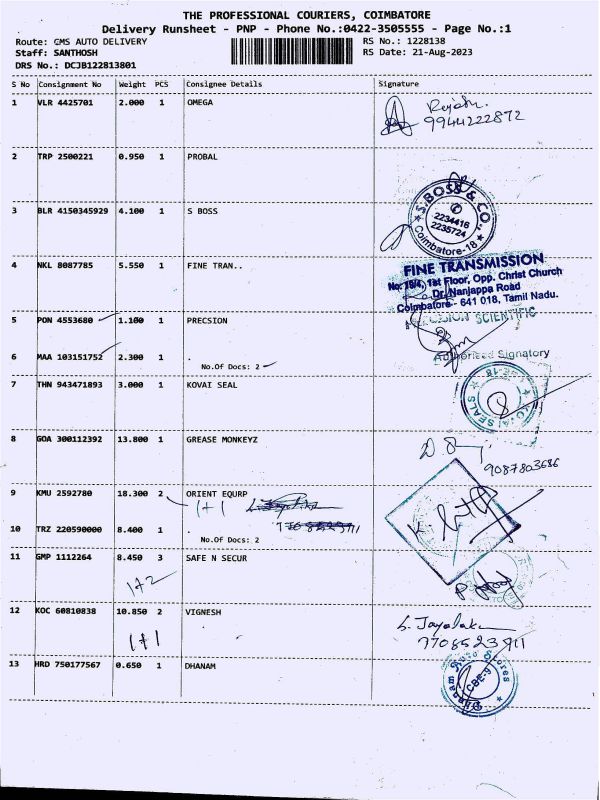 THE PROFESSIONAL COURIERS, COIMBATORE
Delivery Runsheet - PNP - Phone No.:0422-3505555 - Page No.:1
Route: CMS AUTO DELIVERY
RS No.: 1228138
Staff: SANTHOSH
RS Date: 21-Aug-2023
DRS No.: DCJB122813801
S No Consignment No Weight PCS Consignee Details Signature
1 VLR 4425701 2.000 1 OMEGA
9944222872
2 TRP 2500221 0.950 1 PROBAL
3 BLR 4150345929 4.100 1 S BOSS
S. BOSS & CO.
2234416
2235724
Coimbatore-18
4 NKL 8087785 5.550 1 FINE TRAN..
FINE TRANSMISSION
1st Floor, Opp. Christ Church
Dr. Nanjappa Road
Coimbatore - 641 018, Tamil Nadu.
5 PON 4553680 1.100 1 PRECSION
SCIENTIFIC
6 MAA 103151752 2.300 1 .
No.Of Docs: 2
Authorised Signatory
7 THN 943471893 3.000 1 KOVAI SEAL
SEALS
8 GOA 300112392 13.800 1 GREASE MONKEYZ
9087803686
9 KMU 2592780 18.300 2 ORIENT EQURP
1+1
10 TRZ 220590000 8.400 1 .
No.Of Docs: 2
11 GMP 1112264 8.450 3 SAFE N SECUR
1+2
12 KOC 60810838 10.850 2 VIGNESH
1+1
7708523911
13 HRD 750177567 0.650 1 DHANAM
Dhanam Auto Stores
CBE-9